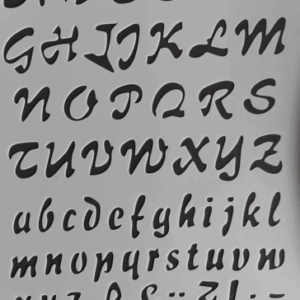 G H I J K L M
N O P Q R S
T U V W X Y Z
a b c d e f g h i j k l
m n o p q r s t u v w
x y z